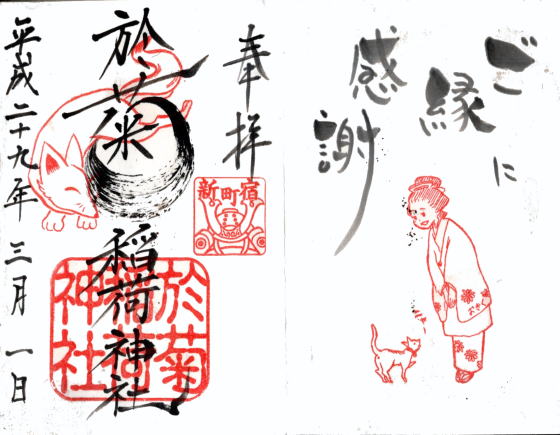 ご縁に
感謝
奉拝
於菊稲荷神社
平成二十九年三月一日
新町宿
於菊
稲荷
神社